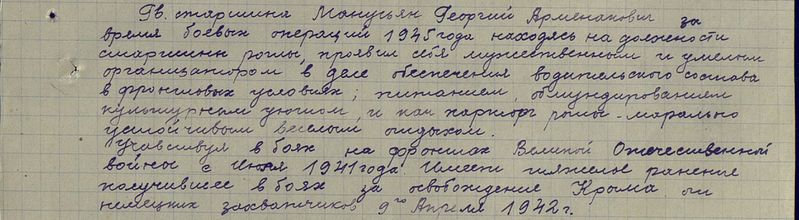 Гв. старшина Манусьян Георгий Арменакович за
время боевых операций 1945 года находясь на должности
старшины роты, проявил себя мужественным и умелым
организатором в деле обеспечения водительского состава
в фронтовых условиях; питанием, обмундированием
культурным уютом, и как парторг роты - морально
устойчивым веселым отдыхом.
Участвуя в боях на фронтах Великой Отечественной
войны с Июля 1941 года. Имеет тяжелое ранение
получившее в боях за освобождение Крыма от
немецких захватчиков 9го Апреля 1942 г.